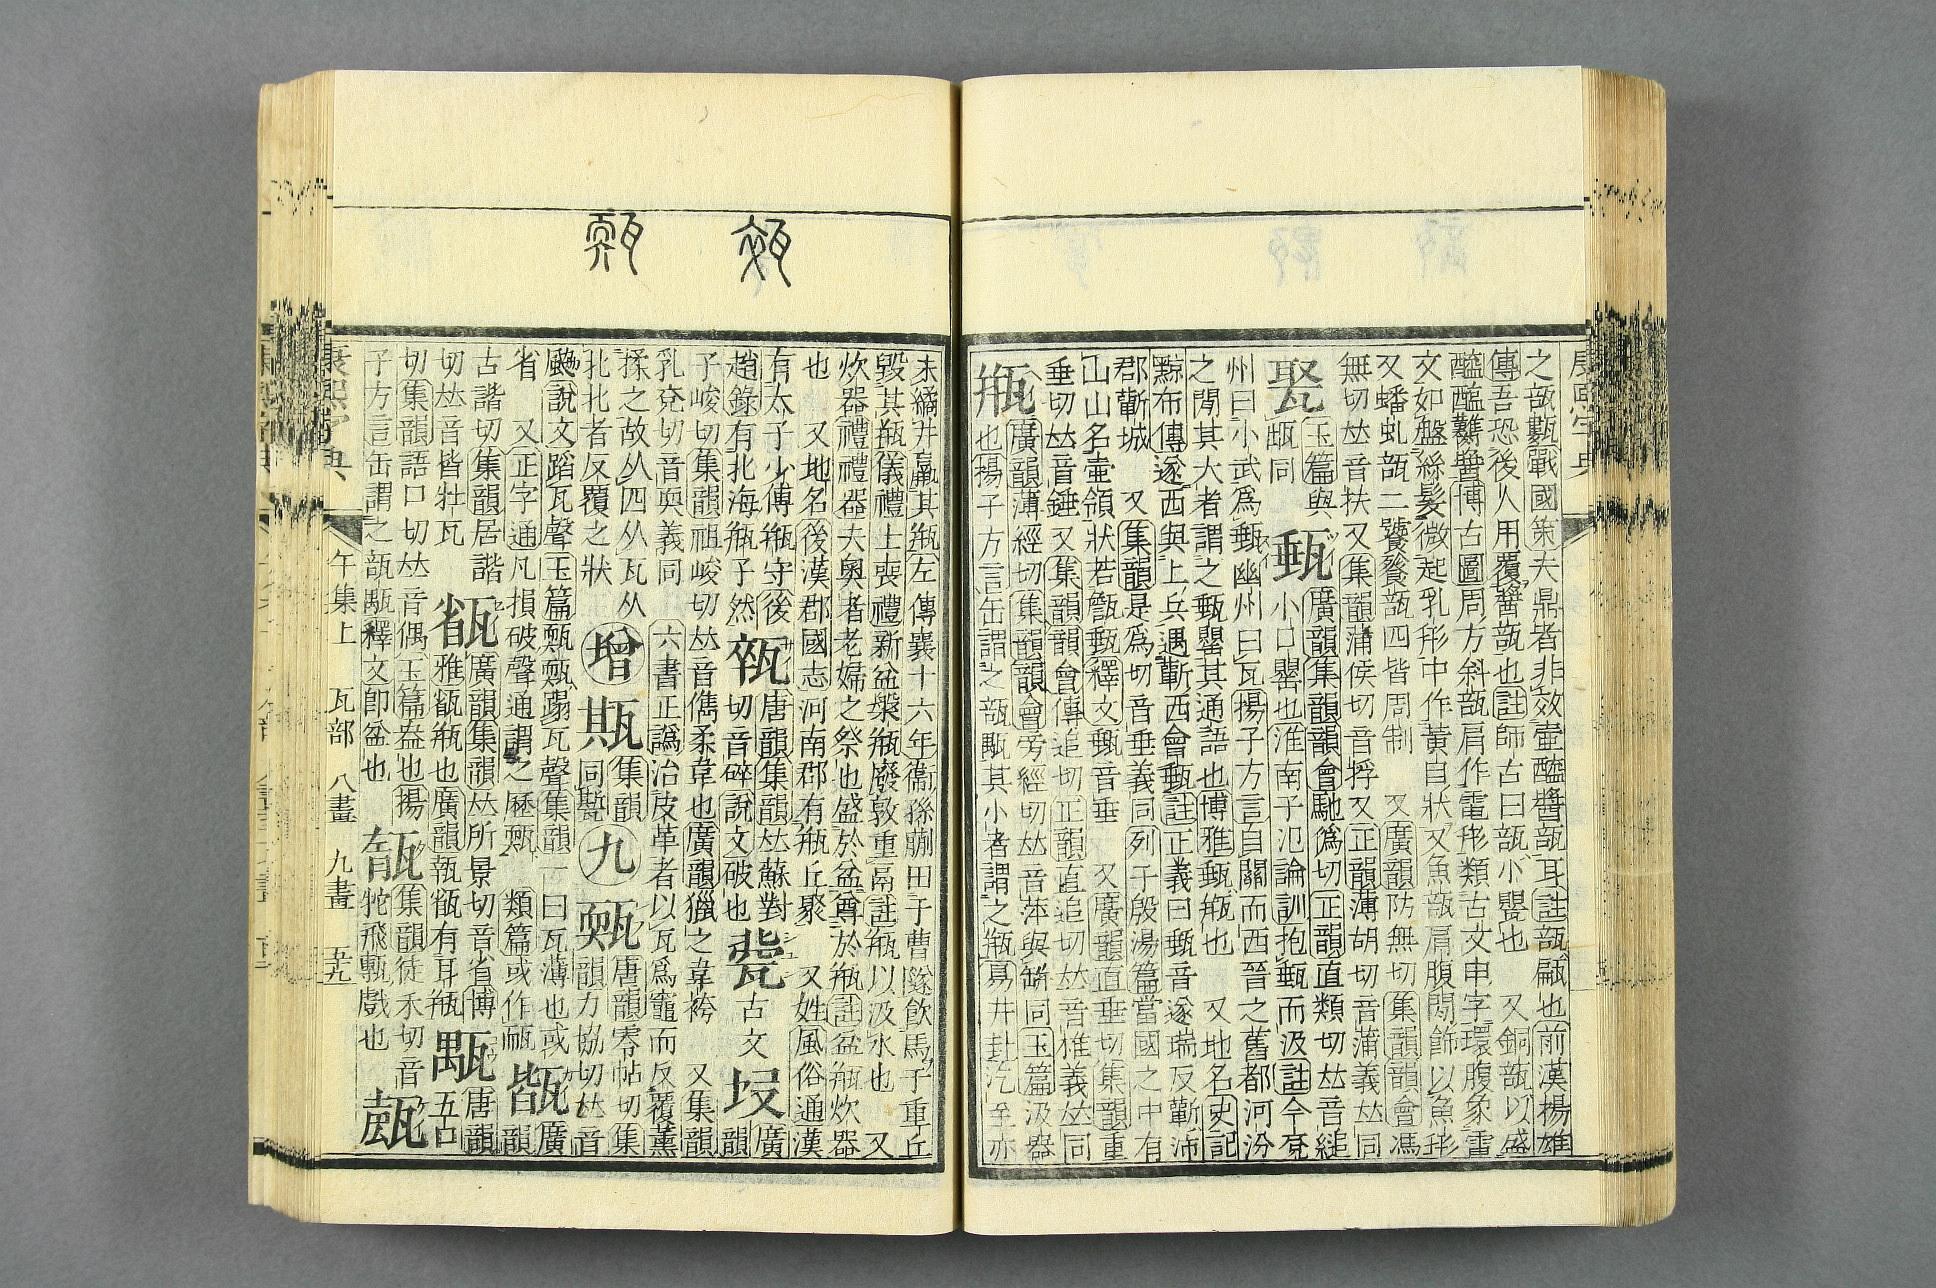 之瓿甊戰國策夫鼎者非效壺醯醬瓿耳註瓿甂也前漢楊雄
傳吾恐後人用覆醬瓿也註師古曰瓿小甖也 又銅瓿以盛
醯醢虀醬博古圖周方斜瓿肩作雷形類古文申字環腹象雷
文如盤絲髮微起乳形中作黃自狀又魚瓿肩腹閒飾以魚形
又蟠虬瓿二饕餮瓿四皆周制 又廣韻防無切集韻韻會馮
無切𠀤音扶又集韻蒲侯切音捊又正韻薄胡切音蒲義𠀤同
瓵同
玉篇與
甀
廣韻集韻韻會馳僞切正韻直類切𠀤音縋
小口甖也淮南子氾論訓抱甀而汲註今兗
州曰小武爲甀幽州曰瓦揚子方言自關而西晉之舊都河汾
之閒其大者謂之甀甖其通語也博雅甀瓶也 又地名史記
黥布傳遂西與上兵遇蘄西會甀註正義曰甀音遂瑞反蘄沛
郡蘄城 又集韻是爲切音垂義同列子殷湯篇當國之中有
山山名壷領狀若甔甀釋文甀音垂 又廣韻直垂切集韻重
垂切𠀤音錘又集韻韻會傳追切正韻直追切𠀤音椎義𠀤同
瓶
廣韻薄經切集韻韻會旁經切𠀤音萍與缾同玉篇汲器
也揚子方言缶謂之瓿甊其小者謂之瓶易井卦汔至亦
未繘井羸其瓶左傳襄十六年衞孫蒯田于曹隧飮馬于重丘
毀其瓶儀禮士喪禮新盆槃瓶廢敦重鬲註瓶以汲水也 又
炊器禮禮器夫奧者老婦之祭也盛於盆尊於瓶註盆瓶炊器
也 又地名後漢郡國志河南郡有瓶丘聚 又姓風俗通漢
有太子少傅瓶守後
趙錄有北海瓶子然
㼎
唐韻集韻𠀤蘇對
切音碎說文破也
古文
廣
韻
子峻切集韻祖峻切𠀤音儁柔韋也廣韻獵之韋袴 又集韻
乳兗切音耎義同 六書正譌治皮革者以瓦爲竈而反覆薰
揉之故从四从瓦从
北北者反覆之狀
增
集韻
同
九
唐韻零帖切集
韻力協切𠀤音
颲說文蹈瓦聲玉篇甄甄蹋瓦聲集韻一曰瓦薄也或
省 又正字通凡損破聲通謂之歷甄 類篇或作㼝
廣
韻
古諧切集韻居諧
切𠀤音皆牡瓦
廣韻集韻𠀤所景切音省博
雅㼳瓶也廣韻瓡㼳有耳瓶
唐韻
五古
切集韻語口切𠀤音偶玉篇盎也揚
子方言缶謂之瓿甊釋文卽盆也
集韻徒禾切音
鴕飛甎戲也
康熙字典
午集上 瓦部 八畫 九畫 五九